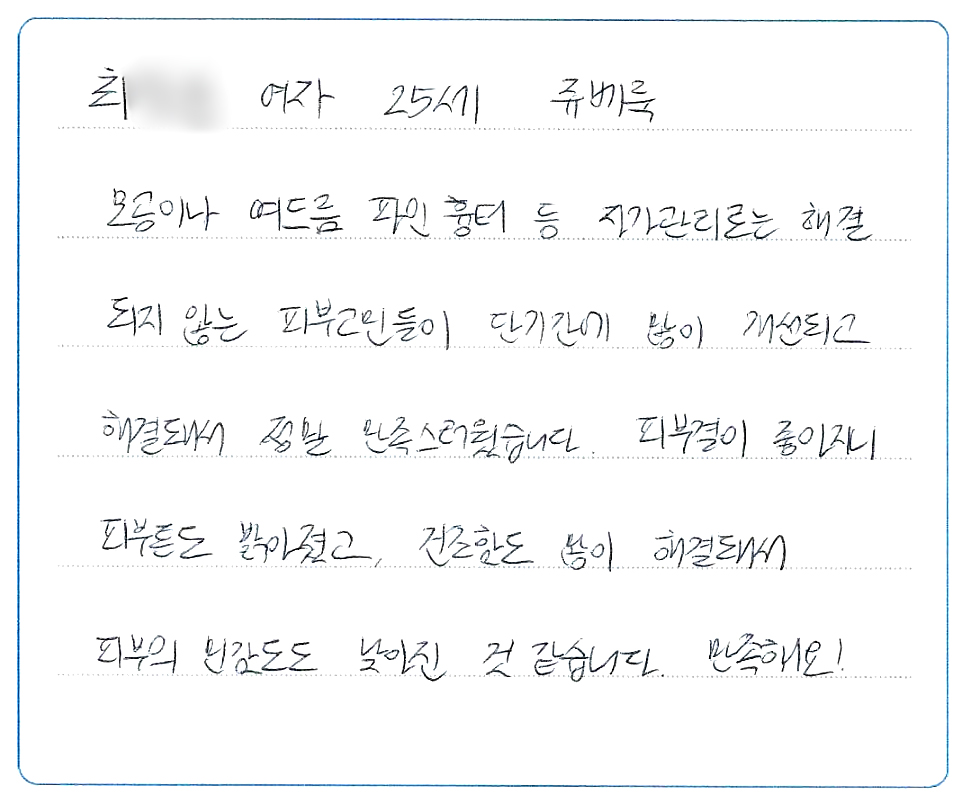 최 여자 25세 쥬베룩
모공이나 여드름 파인 흉터 등 자가관리로는 해결
되지 않는 피부고민들이 단기간에 많이 개선되고
해결돼서 정말 만족스러웠습니다. 피부결이 좋아지니
피부톤도 밝아졌고, 건조함도 많이 해결돼서
피부의 민감도도 낮아진 것 같습니다. 만족해요!